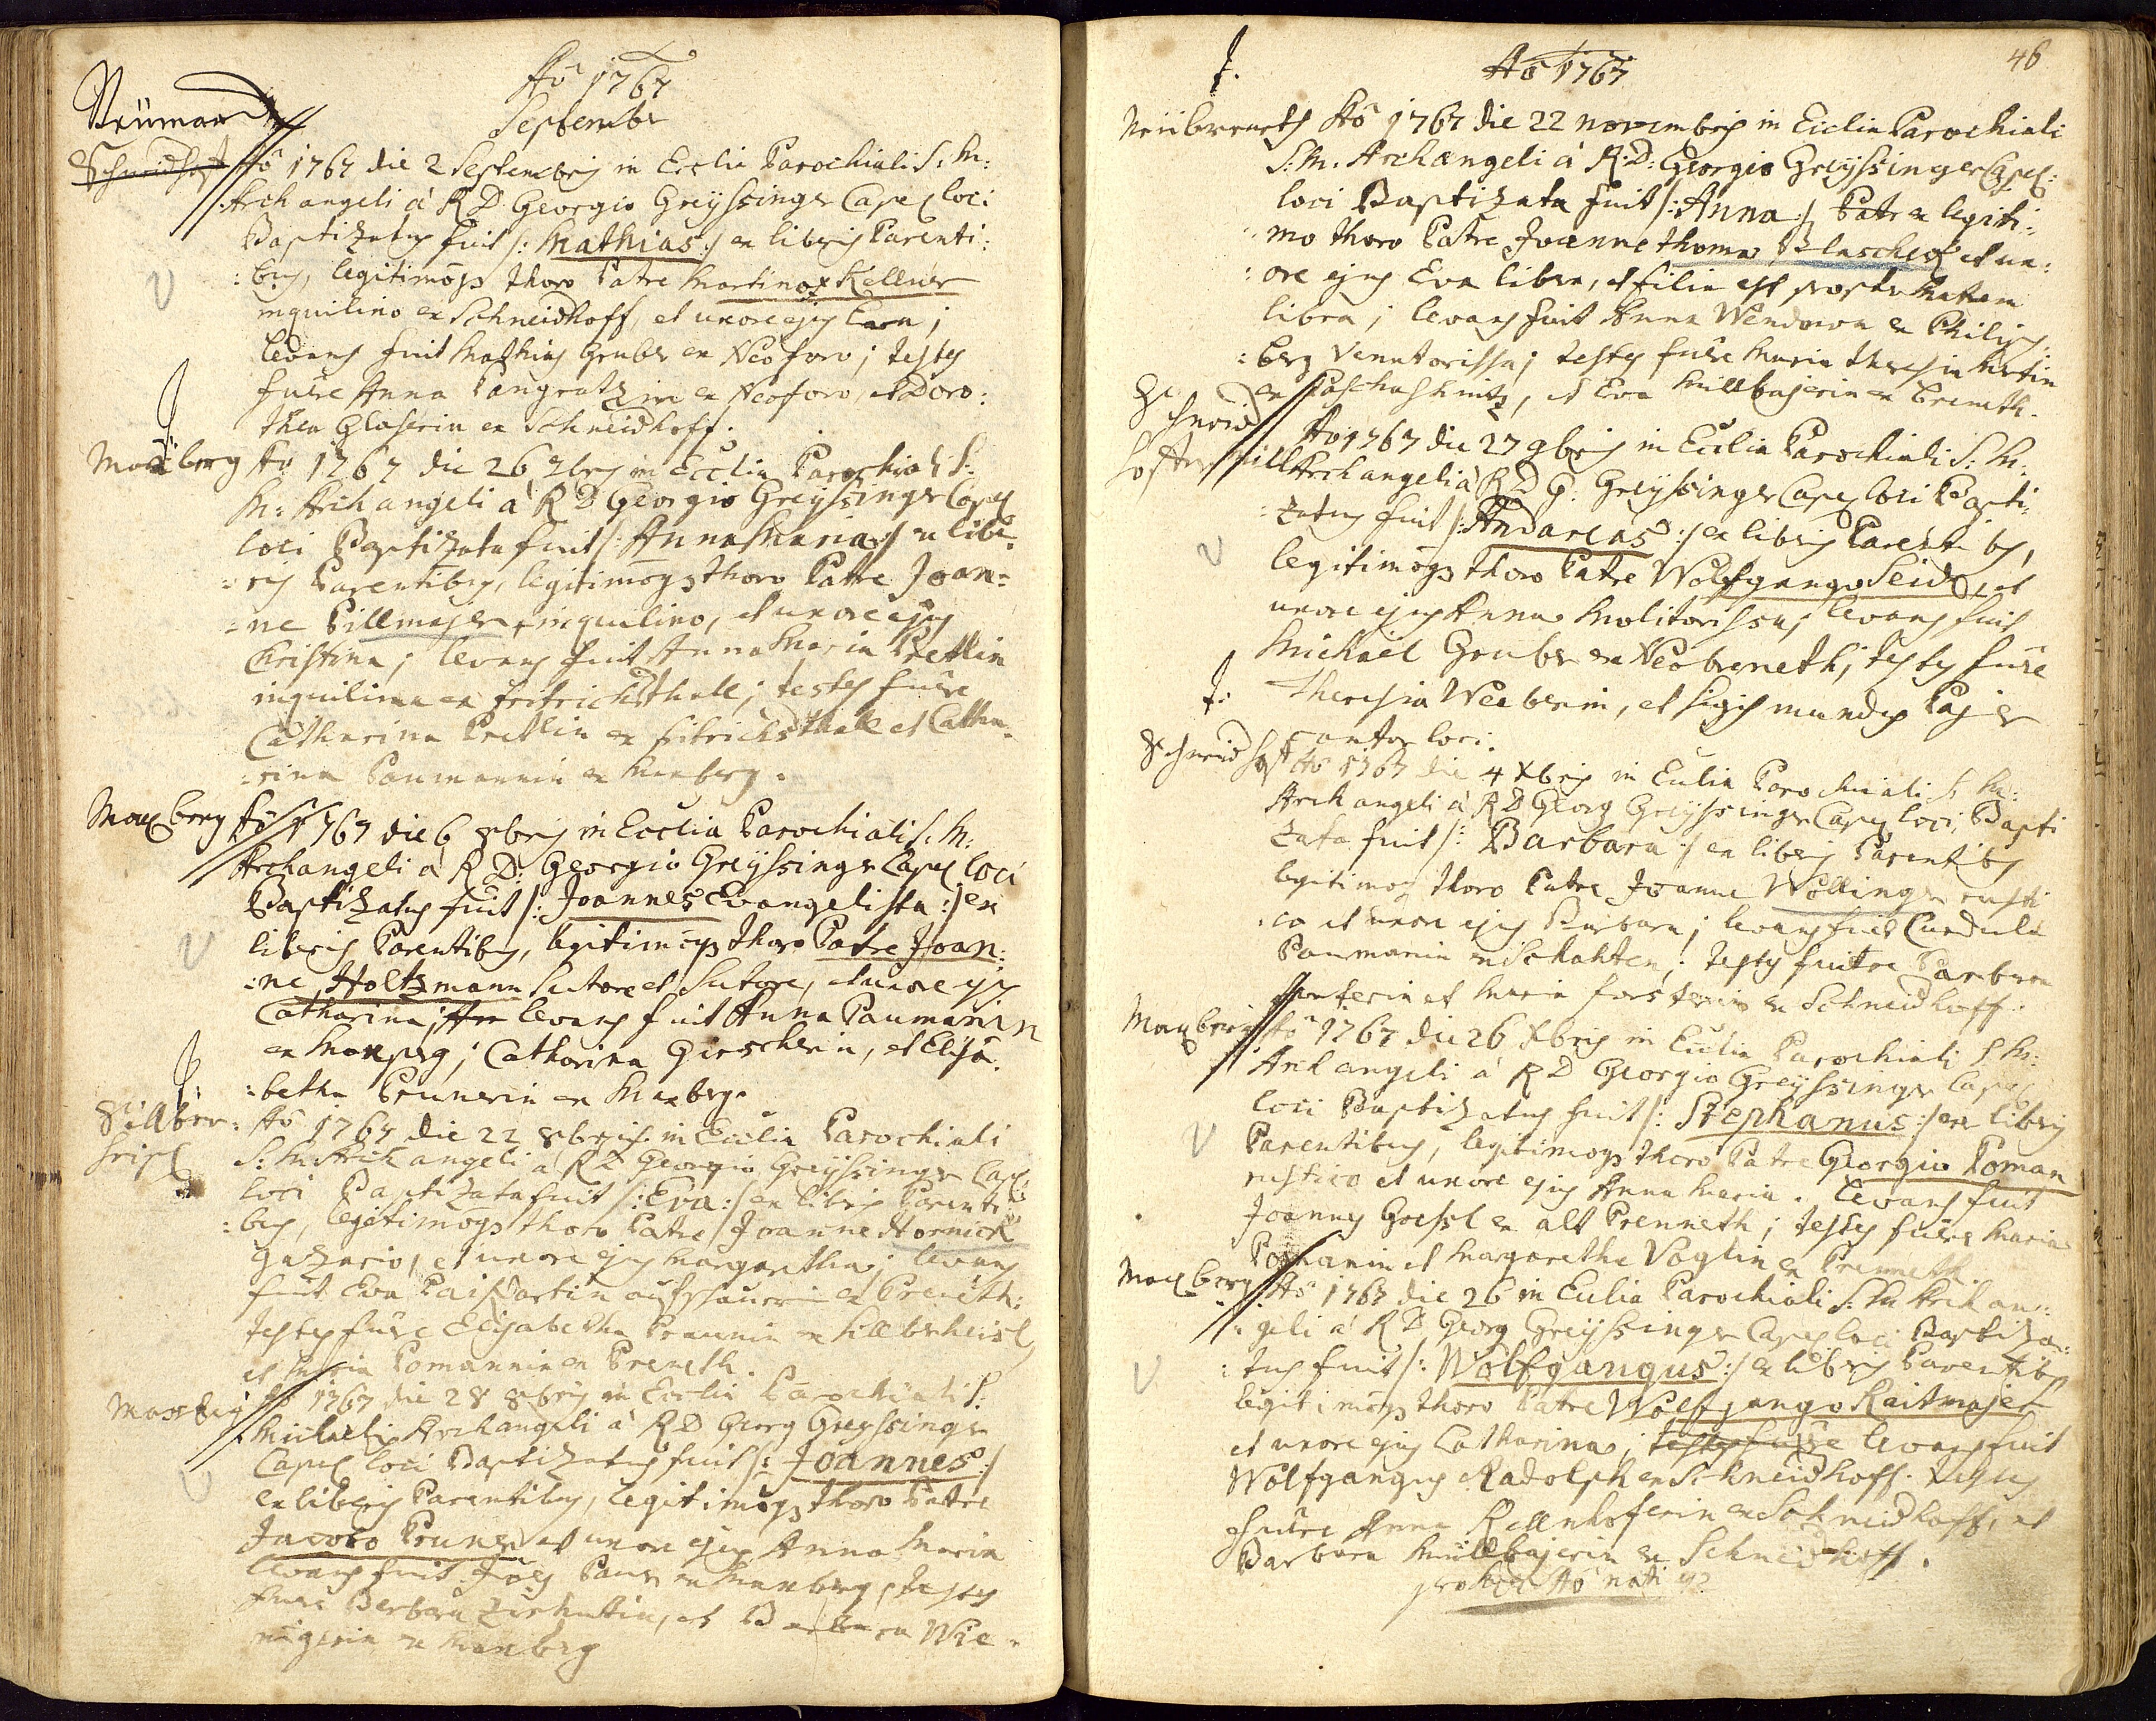 Aö 1767
Septembr
Neümar
Schneidhoff Aö 1767 die 2 Septembris in Ecclia Parochiali S: M:
Archangeli à R D: Georgio Greyssinger Capel loci
Baptizatus fuit /: Mathias :/ ex liberis Parenti:
:bus, legitimoqs thoro Patre Martino Kellner
inquilino ex Schneidhoff, et uxore ejus Eva;
levans fuit Mathias Gruber ex Neoforo; testes
fuere Anna Pangratzin ex Neoforo, et Doro:
thea Glaserin ex Schneidhoff.
Maxberg Aö 1767 die 26 7bris in Ecclia Parochiali S:
M: Archangeli à R D Georgio Greyssinger Capel
loci Baptizata fuit /: Anna Maria :/ ex libe:
:ris Parentibus, legitimoqs thoro Patre Joan=
:ne Pillmajer, inquilino, et uxore ejus
Christina; levans fuit Anna Maria Prettlin
inquilina ex fritrichsthall; testes fuere
Catharina Prettlin ex fritrichsthall et Catha:
:rina Paumannin ex Maxberg.
Maxberg Aö 1767 die 6 8bris in Ecclia Parochiali S: M:
Archangeli à R D: Georgio Greyssinger Capel loci
Baptizatus fuit /: Joannes Evangelista :/ ex
liberis Parentibus, legitimoqs thoro Patre Joan:
:ne Holtzmann Sutore et Sutore, et uxore ejus
Catharina; levans fuit Anna Paumanin
ex Maxperg; Catharina Girschkin, et Elisa:
:betha Prunerin ex Maxberg.
Sillber: Aö 1767 die 22 8bris in Ecclia Parochiali
heisl S: M: Archangeli à R D Georgio Greyssinger Capel
loci Baptizata fuit /: Eva :/ ex liberis Parenti:
:bus, legitimoqs thoro Patre Joanne Hornick
gazario, et uxore ejus Margaretha; levans
fuit Eva ex Preneth:
testes fuere Elisabetha Praunin ex Sillberheisl,
et Maria Pomannin ex Preneth.
Maxberg Aö 1767 die 28 8bris in Ecclia Parochiali S:
Michaelis Archangeli à R D Georg Greyssinger
Capel loci Baptizatus fuit /: Joannes :/
ex liberis Parentibus, legitimoqs thoro Patre
Jacobo Pruner et uxore ejus Anna Maria
levans fuit Joes Paur ex Maxberg, testes
fuere Barbara, et Barbara Wie:
nigerin ex Maxberg
46
Aö 1767
Neübreneth Aö 1767 die 22 Novembris in Ecclia Parochiali
S: M: Archangeli à R: D: Georgio Greyssinger Capel:
loci Baptizata fuit /: Anna :/ Patre legiti:
:mo thoro Patre Joanne Thoma Blascheck et ux:
:ore ejus Eva libera, et filia est propter Matrem
libera; levans fuit Anna Wendowa ex Philips:
:berg Venatorissa; testes fuere Maria Theresia
, et Eva Müllbajerin ex Breneth.
Schneid
hoffer mill Aö 1767 die 27 9bris in Ecclia Parochiali S: M:
Archangeli à R D G: Greyssinger Capel loci Bapti:
:zatus fuit /: Andareas :/ ex liberis Parentibus,
legitimoqs thoro Patre Wolfgango Seidl, et
uxore ejus Anna Molitorissa; levans fuit
Michael Gruber ex Neobreneth; testes fuere
Theresia Weeberin, et Sigismundus Pajer
cantor loci.
Schneidhoff Aö 1767 die 4 Xbris in Ecclia Parochiali S: M:
Archangeli à R D Georg Greyssinger Capel loci Bapti
zata fuit /: Barbara :/ ex liberis Parentibus
legitimoqs thoro Patre Joanne Wöllinger rusti
:co et uxore ejus Barbara; levans fuit Curdula
Paumanin ex Schahten; testes fuere Barbara
et Maria forsterin ex Schneidhoff.
Maxberg Aö 1767 die 26 Xbris in Ecclia Parochiali S M:
Archangeli à R D Georgio Greyssinger Capel
loci Baptizatus fuit /: Stephanus :/ ex liberis
Parentibus, legitimoqs thoro Patre Georgio Poman
rustico et uxore ejus Anna Maria. levans fuit
Joannes Goessl ex alt Prenneth; testes fuere Maria
Pomanin et Margaretha Voglin ex Prenneth.
Maxberg Aö 1767 die 26 in Ecclia Parochiali S: M: Archan:
:geli à R D Georg Greyssinger Capel loci Baptiza:
:tus fuit /: Wolfgangus :/ ex liberis Parentibus
legitimoqs thoro Patre Wolfgango Raitmajer
et uxore ejus Catharina; testes fuere levans fuit
Wolfgangus Radolph ex Schneidhoff. testes
fuere Anna Kellnhoferin ex Schneidhoff, et
Barbara Müllbajerin ex Schneidhoff.
pro hoc Aö nati 42